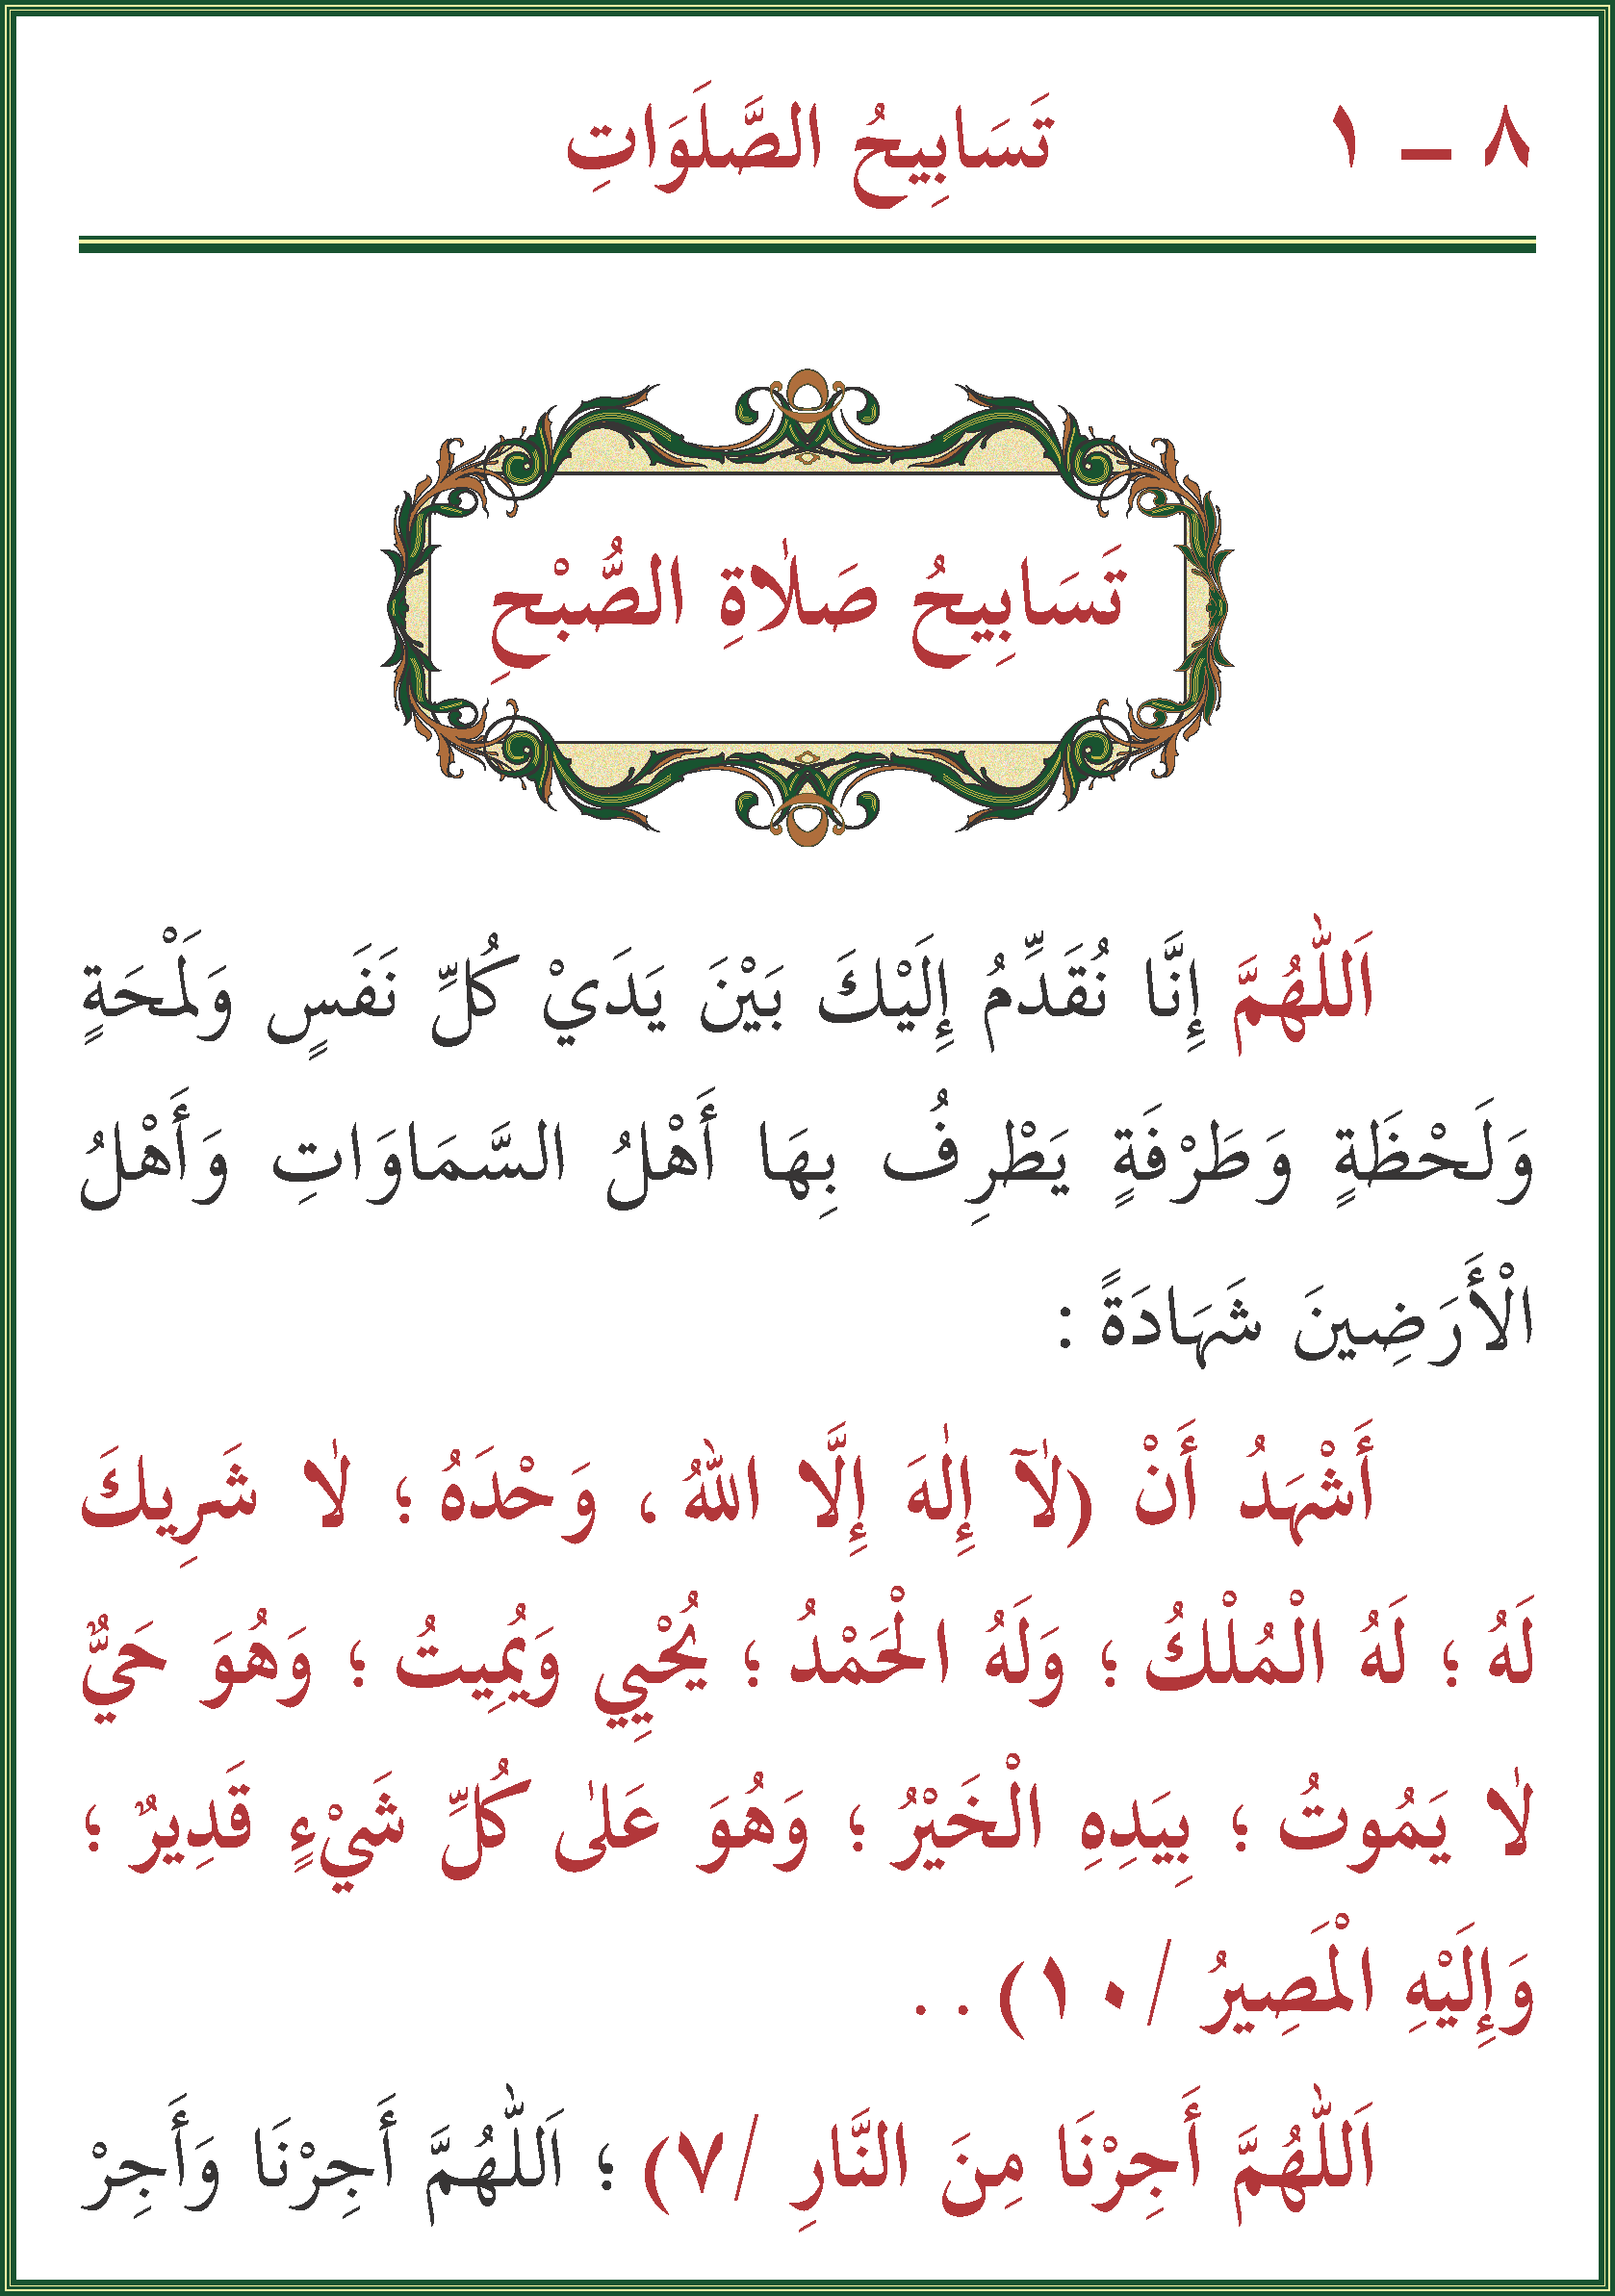 ٨ – ١ تَسَابِيحُ الصَّلَوَاتِ
تَسَابِيحُ صَلَاةِ الصُّبْحِ
اَللّٰهُمَّ إِنَّا نُقَدِّمُ إِلَيْكَ بَيْنَ يَدَيْ كُلِّ نَفَسٍ وَلَمْحَةٍ
وَلَحْظَةٍ وَطَرْفَةٍ يَطْرِفُ بِهَا أَهْلُ السَّمَاوَاتِ وَأَهْلُ
الْأَرَضِينَ شَهَادَةً :
أَشْهَدُ أَنْ (لَآ إِلٰهَ إِلَّا اللهُ ، وَحْدَهُ ؛ لَا شَرِيكَ
لَهُ ؛ لَهُ الْمُلْكُ ؛ وَلَهُ الْحَمْدُ ؛ يُحْيِي وَيُمِيتُ ؛ وَهُوَ حَيٌّ
لَا يَمُوتُ ؛ بِيَدِهِ الْخَيْرُ ؛ وَهُوَ عَلٰى كُلِّ شَيْءٍ قَدِيرٌ ؛
وَإِلَيْهِ الْمَصِيرُ /١٠) . .
اَللّٰهُمَّ أَجِرْنَا مِنَ النَّارِ /٧) ؛ اَللّٰهُمَّ أَجِرْنَا وَأَجِرْ